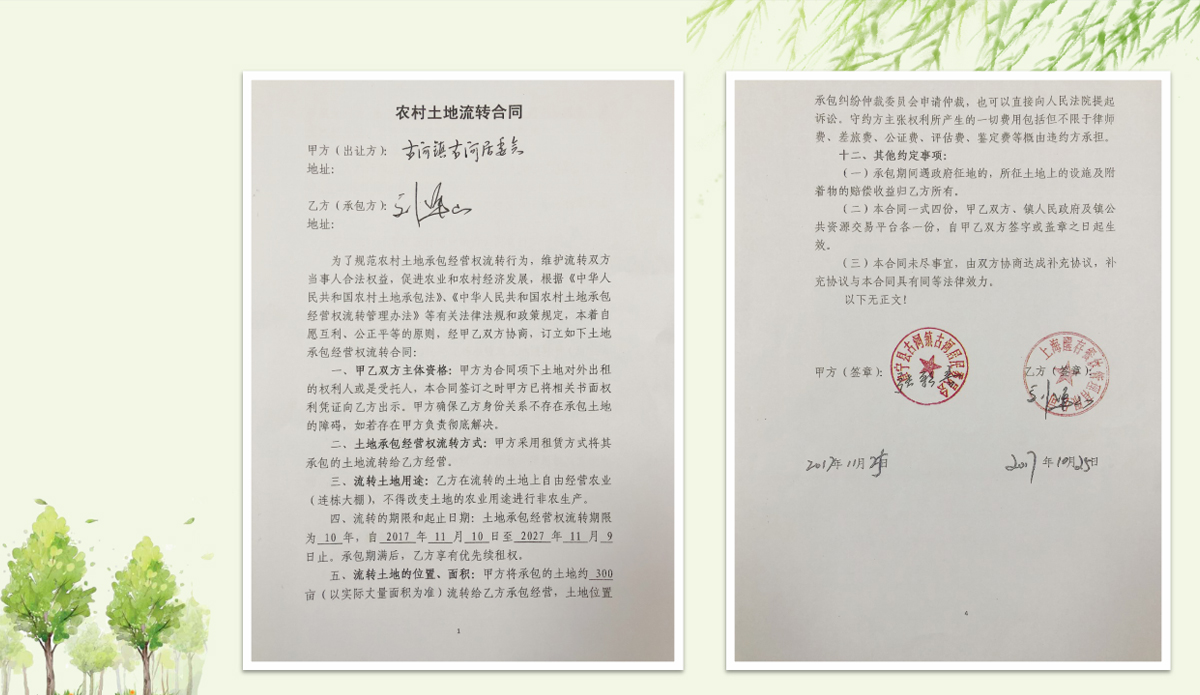 农村土地流转合同
甲方（出让方）：古河镇古河居委会
地址：
乙方（承包方）：
地址：
为了规范农村土地承包经营权流转行为，维护流转双方
当事人合法权益，促进农业和农村经济发展，根据《中华人
民共和国农村土地承包法》、《中华人民共和国农村土地承包
经营权流转管理办法》等有关法律法规和政策规定，本着自
愿互利、公正平等的原则，经甲乙双方协商，订立如下土地
承包经营权流转合同：
一、甲乙双方主体资格：甲方为合同项下土地对外出租
的权利人或是受托人，本合同签订之时甲方已将相关书面权
利凭证向乙方出示。甲方确保乙方身份关系不存在承包土地
的障碍，如若存在甲方负责彻底解决。
二、土地承包经营权流转方式：甲方采用租赁方式将其
承包的土地流转给乙方经营。
三、流转土地用途：乙方在流转的土地上自由经营农业
（连栋大棚），不得改变土地的农业用途进行非农生产。
四、流转的期限和起止日期：土地承包经营权流转期限
为 10 年，自 2017 年 11 月 10 日至 2027 年 11 月 9
日止。承包期满后，乙方享有优先续租权。
五、流转土地的位置、面积：甲方将承包的土地约 300
亩（以实际丈量面积为准）流转给乙方承包经营，土地位置
1
承包纠纷仲裁委员会申请仲裁，也可以直接向人民法院提起
诉讼。守约方主张权利所产生的一切费用包括但不限于律师
费、差旅费、公证费、评估费、鉴定费等概由违约方承担。
十二、其他约定事项：
（一）承包期间遇政府征地的，所征土地上的设施及附
着物的赔偿收益归乙方所有。
（二）本合同一式四份，甲乙双方、镇人民政府及镇公
共资源交易平台各一份，自甲乙双方签字或盖章之日起生
效。
（三）本合同未尽事宜，由双方协商达成补充协议，补
充协议与本合同具有同等法律效力。
以下无正文！
甲方（签章）：
乙方（签章）：
2017年 11月 25日
2017 年10月25日
6